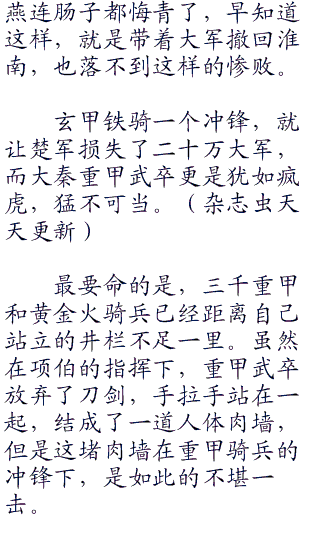 燕连肠子都悔青了，早知道
这样，就是带着大军撤回淮
南，也落不到这样的惨败。
玄甲铁骑一个冲锋，就
让楚军损失了二十万大军，
而大秦重甲武卒更是犹如疯
虎，猛不可当。（杂志虫天
天更新）
最要命的是，三千重甲
和黄金火骑兵已经距离自己
站立的井栏不足一里。虽然
在项伯的指挥下，重甲武卒
放弃了刀剑，手拉手站在一
起，结成了一道人体肉墙，
但是这堵肉墙在重甲骑兵的
冲锋下，是如此的不堪一
击。